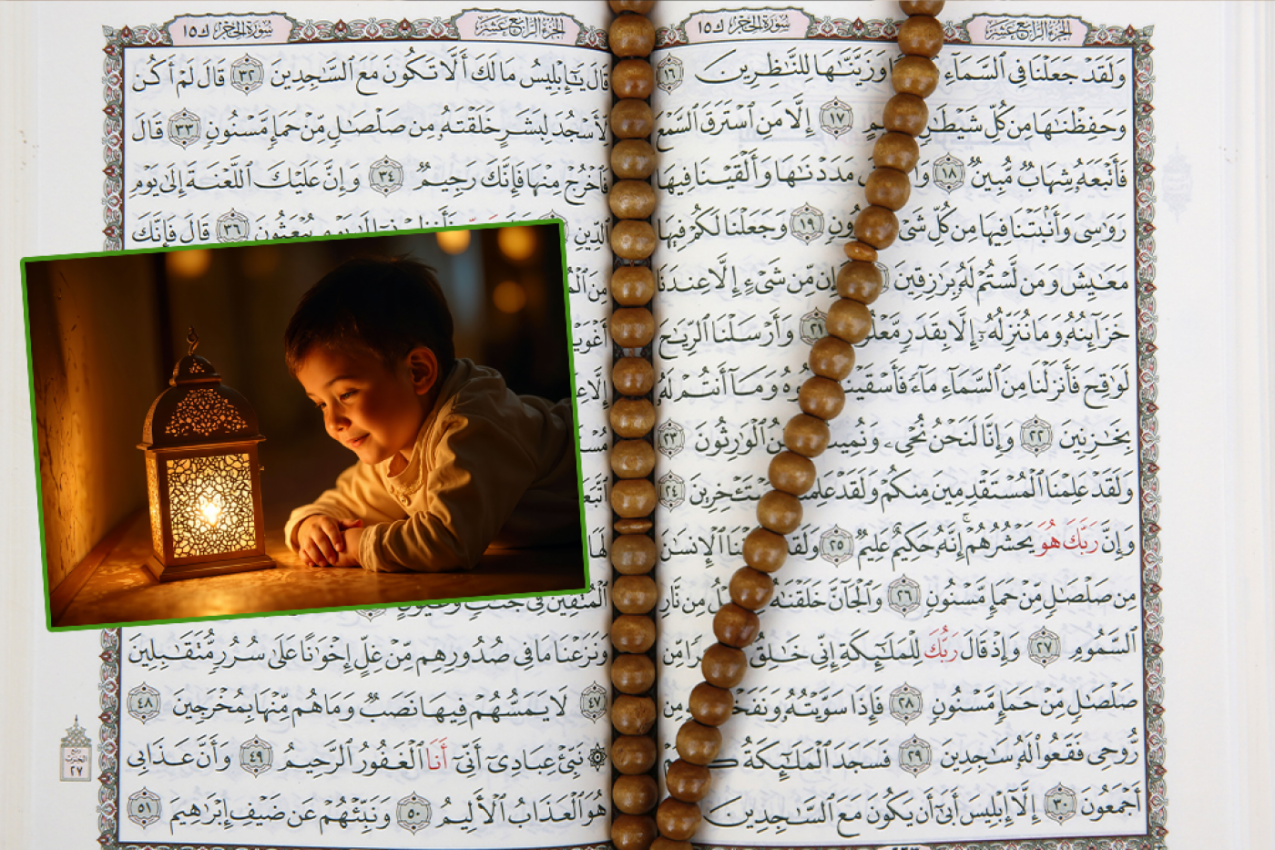 الجُزْءُ الرَّابِعَ عَشَرَ سُورَةُ الحِجْرِ ك ١٥
وَلَقَدْ جَعَلْنَا فِى ٱلسَّمَآءِ وَزَيَّنَّـٰهَا لِلنَّـٰظِرِينَ ١٦
وَحَفِظْنَـٰهَا مِن كُلِّ شَيْطَـٰنٍ ١٧ إِلَّا مَنِ ٱسْتَرَقَ ٱلسَّمْعَ
فَأَتْبَعَهُۥ شِهَابٌ مُّبِينٌ ١٨ مَدَدْنَـٰهَا وَأَلْقَيْنَا فِيهَا
رَوَٰسِىَ وَأَنۢبَتْنَا فِيهَا مِن كُلِّ شَىْءٍ ١٩ وَجَعَلْنَا لَكُمْ فِيهَا
مَعَـٰيِشَ وَمَن لَّسْتُمْ لَهُۥ بِرَٰزِقِينَ وَإِن مِّن شَىْءٍ إِلَّا عِندَنَا
خَزَآئِنُهُۥ وَمَا نُنَزِّلُهُۥٓ إِلَّا بِقَدَرٍ مَّعْلُومٍ ٢١ وَأَرْسَلْنَا ٱلرِّيَـٰحَ
لَوَٰقِحَ فَأَنزَلْنَا مِنَ ٱلسَّمَآءِ مَآءً فَأَسْقَيْنَـٰكُمُوهُ وَمَآ أَنتُمْ لَهُۥ
بِخَـٰزِنِينَ ٢٢ وَإِنَّا لَنَحْنُ نُحْىِۦ وَنُمِيتُ وَنَحْنُ ٱلْوَٰرِثُونَ ٢٣
وَلَقَدْ عَلِمْنَا ٱلْمُسْتَقْدِمِينَ مِنكُمْ وَلَقَدْ عَلِمْنَا ٱلْمُسْتَـْٔخِرِينَ ٢٤
وَإِنَّ رَبَّكَ هُوَ يَحْشُرُهُمْ ۚ إِنَّهُۥ حَكِيمٌ عَلِيمٌ ٢٥ وَلَقَدْ خَلَقْنَا ٱلْإِنسَـٰنَ
مِن صَلْصَـٰلٍ مِّنْ حَمَإٍ مَّسْنُونٍ ٢٦ وَٱلْجَآنَّ خَلَقْنَـٰهُ مِن نَّارِ
ٱلسَّمُومِ ٢٧ وَإِذْ قَالَ رَبُّكَ لِلْمَلَـٰٓئِكَةِ إِنِّى خَـٰلِقٌۢ بَشَرًا مِّن
صَلْصَـٰلٍ مِّنْ حَمَإٍ مَّسْنُونٍ ٢٨ فَإِذَا سَوَّيْتُهُۥ وَنَفَخْتُ مِن
رُّوحِى فَقَعُوا۟ لَهُۥ سَـٰجِدِينَ ٢٩ فَسَجَدَ ٱلْمَلَـٰٓئِكَةُ كُلُّهُمْ
أَجْمَعُونَ ٣٠ إِلَّآ إِبْلِيسَ أَبَىٰٓ أَن يَكُونَ مَعَ ٱلسَّـٰجِدِينَ
الجُزْءُ الرَّابِعَ عَشَرَ سُورَةُ الحِجْرِ ك ١٥
قَالَ يَـٰٓإِبْلِيسُ مَا لَكَ أَلَّا تَكُونَ مَعَ ٱلسَّـٰجِدِينَ ٣٢ قَالَ لَمْ أَكُن
لِّأَسْجُدَ لِبَشَرٍ خَلَقْتَهُۥ مِن صَلْصَـٰلٍ مِّنْ حَمَإٍ مَّسْنُونٍ ٣٣ قَالَ
فَٱخْرُجْ مِنْهَا فَإِنَّكَ رَجِيمٌ ٣٤ وَإِنَّ عَلَيْكَ ٱللَّعْنَةَ إِلَىٰ يَوْمِ
ٱلدِّينِ فَأَنظِرْنِىٓ إِلَىٰ يَوْمِ يُبْعَثُونَ ٣٦ قَالَ فَإِنَّكَ
مِنَ
ٱلْمُتَّقِينَ فِى جَنَّـٰتٍ وَعُيُونٍ
وَنَزَعْنَا مَا فِى صُدُورِهِم مِّنْ غِلٍّ إِخْوَٰنًا عَلَىٰ سُرُرٍ مُّتَقَـٰبِلِينَ
٤٧ لَا يَمَسُّهُمْ فِيهَا نَصَبٌ وَمَا هُم مِّنْهَا بِمُخْرَجِينَ ٤٨
۞ نَبِّئْ عِبَادِىٓ أَنِّىٓ أَنَا ٱلْغَفُورُ ٱلرَّحِيمُ ٤٩ وَأَنَّ عَذَابِى
هُوَ ٱلْعَذَابُ ٱلْأَلِيمُ ٥٠ وَنَبِّئْهُمْ عَن ضَيْفِ إِبْرَٰهِيمَ ٥١
٢٧